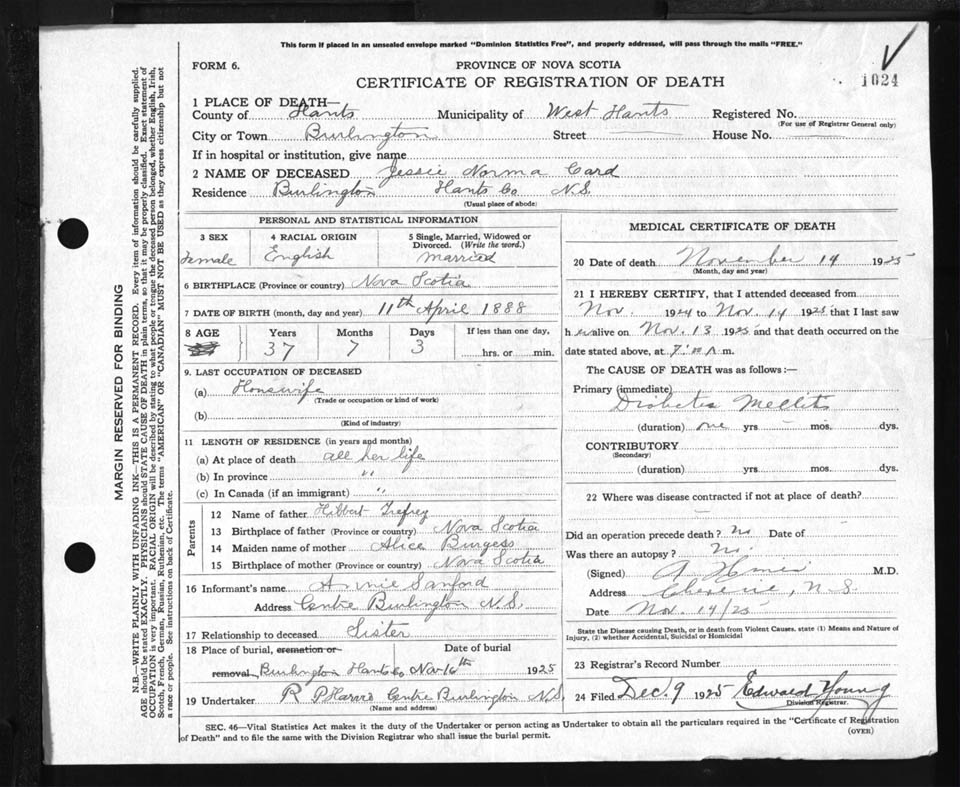 This form if placed in an unsealed envelope marked "Dominion Statistics Free", and properly addressed, will pass through the mails "FREE."
FORM 6.
PROVINCE OF NOVA SCOTIA
1024
CERTIFICATE OF REGISTRATION OF DEATH
1 PLACE OF DEATH—
County of Hants Municipality of West Hants Registered No.
(For use of Registrar General only)
City or Town Burlington Street House No.
If in hospital or institution, give name
2 NAME OF DECEASED Jessie Norma Card
Residence Burlington Hants Co N.S.
(Usual place of abode)
PERSONAL AND STATISTICAL INFORMATION
3 SEX 4 RACIAL ORIGIN 5 Single, Married, Widowed or Divorced. (Write the word.)
Female English married
6 BIRTHPLACE (Province or country) Nova Scotia
7 DATE OF BIRTH (month, day and year) 11th April 1888
8 AGE Years Months Days If less than one day,
37 7 3 hrs. or min.
9. LAST OCCUPATION OF DECEASED
(a) Housewife
(Trade or occupation or kind of work)
(b)
(Kind of industry)
11 LENGTH OF RESIDENCE (in years and months)
(a) At place of death all her life
(b) In province "
(c) In Canada (if an immigrant) "
Parents
12 Name of father Hibbert Trefrey
13 Birthplace of father (Province or country) Nova Scotia
14 Maiden name of mother Alice Burgess
15 Birthplace of mother (Province or country) Nova Scotia
16 Informant's name Annie Sanford
Address Centre Burlington N.S.
17 Relationship to deceased Sister
18 Place of burial, cremation or Date of burial
removal Burlington Hants Co Nov 16th 1925
19 Undertaker R P Harvie Centre Burlington N.S.
(Name and address)
MEDICAL CERTIFICATE OF DEATH
20 Date of death November 14 1925
(Month, day and year)
21 I HEREBY CERTIFY, that I attended deceased from
Nov. 1924 to Nov. 14 1925 that I last saw
her alive on Nov. 13 1925 and that death occurred on
date stated above, at 7:00 A m.
The CAUSE OF DEATH was as follows:—
Primary (immediate)
Diabetes Mellits
(duration) one yrs - mos. dys.
CONTRIBUTORY
(Secondary)
(duration) yrs mos. dys.
22 Where was disease contracted if not at place of death?
Did an operation precede death? No Date of
Was there an autopsy? No.
(Signed) M.D.
Address Cheverie, N.S.
Date Nov. 14/25
State the Disease causing Death, or in death from Violent Causes, state (1) Means and Nature of Injury, (2) whether Accidental, Suicidal or Homicidal
23 Registrar's Record Number
24 Filed Dec. 9 1925 Edward Young
Division Registrar.
SEC. 46—Vital Statistics Act makes it the duty of the Undertaker or person acting as Undertaker to obtain all the particulars required in the "Certificate of Registration
of Death" and to file the same with the Division Registrar who shall issue the burial permit.
(OVER)
MARGIN RESERVED FOR BINDING
N.B.—WRITE PLAINLY WITH UNFADING INK—THIS IS A PERMANENT RECORD. Every item of information should be carefully supplied.
AGE should be stated EXACTLY. PHYSICIANS should STATE CAUSE OF DEATH in plain terms, so that it may be properly classified. Exact statement of
OCCUPATION is very important. RACIAL ORIGIN will be described by stating to what people or tongue the deceased person belonged, whether English, Irish,
Scotch, French, German, Russian, Ruthenian, etc. The terms "AMERICAN" OR "CANADIAN" MUST NOT BE USED as they express citizenship but not
a race or people. See instructions on back of Certificate.